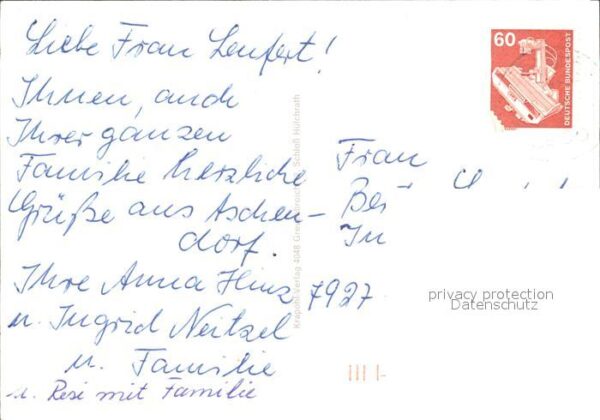 Liebe Frau Lenfert!
Ihnen, auch
Ihrer ganzen
Familie herzliche
Grüße aus Aschen-
dorf.
Ihre Anna Hinz
u. Ingrid Neitzel
u. Familie
u. Resi mit Familie
Krapohl-Verlag 4048 Grevenbroich Schloß Hülchrath
Frau
Bei
In
7927
60
DEUTSCHE BUNDESPOST
privacy protection
Datenschutz